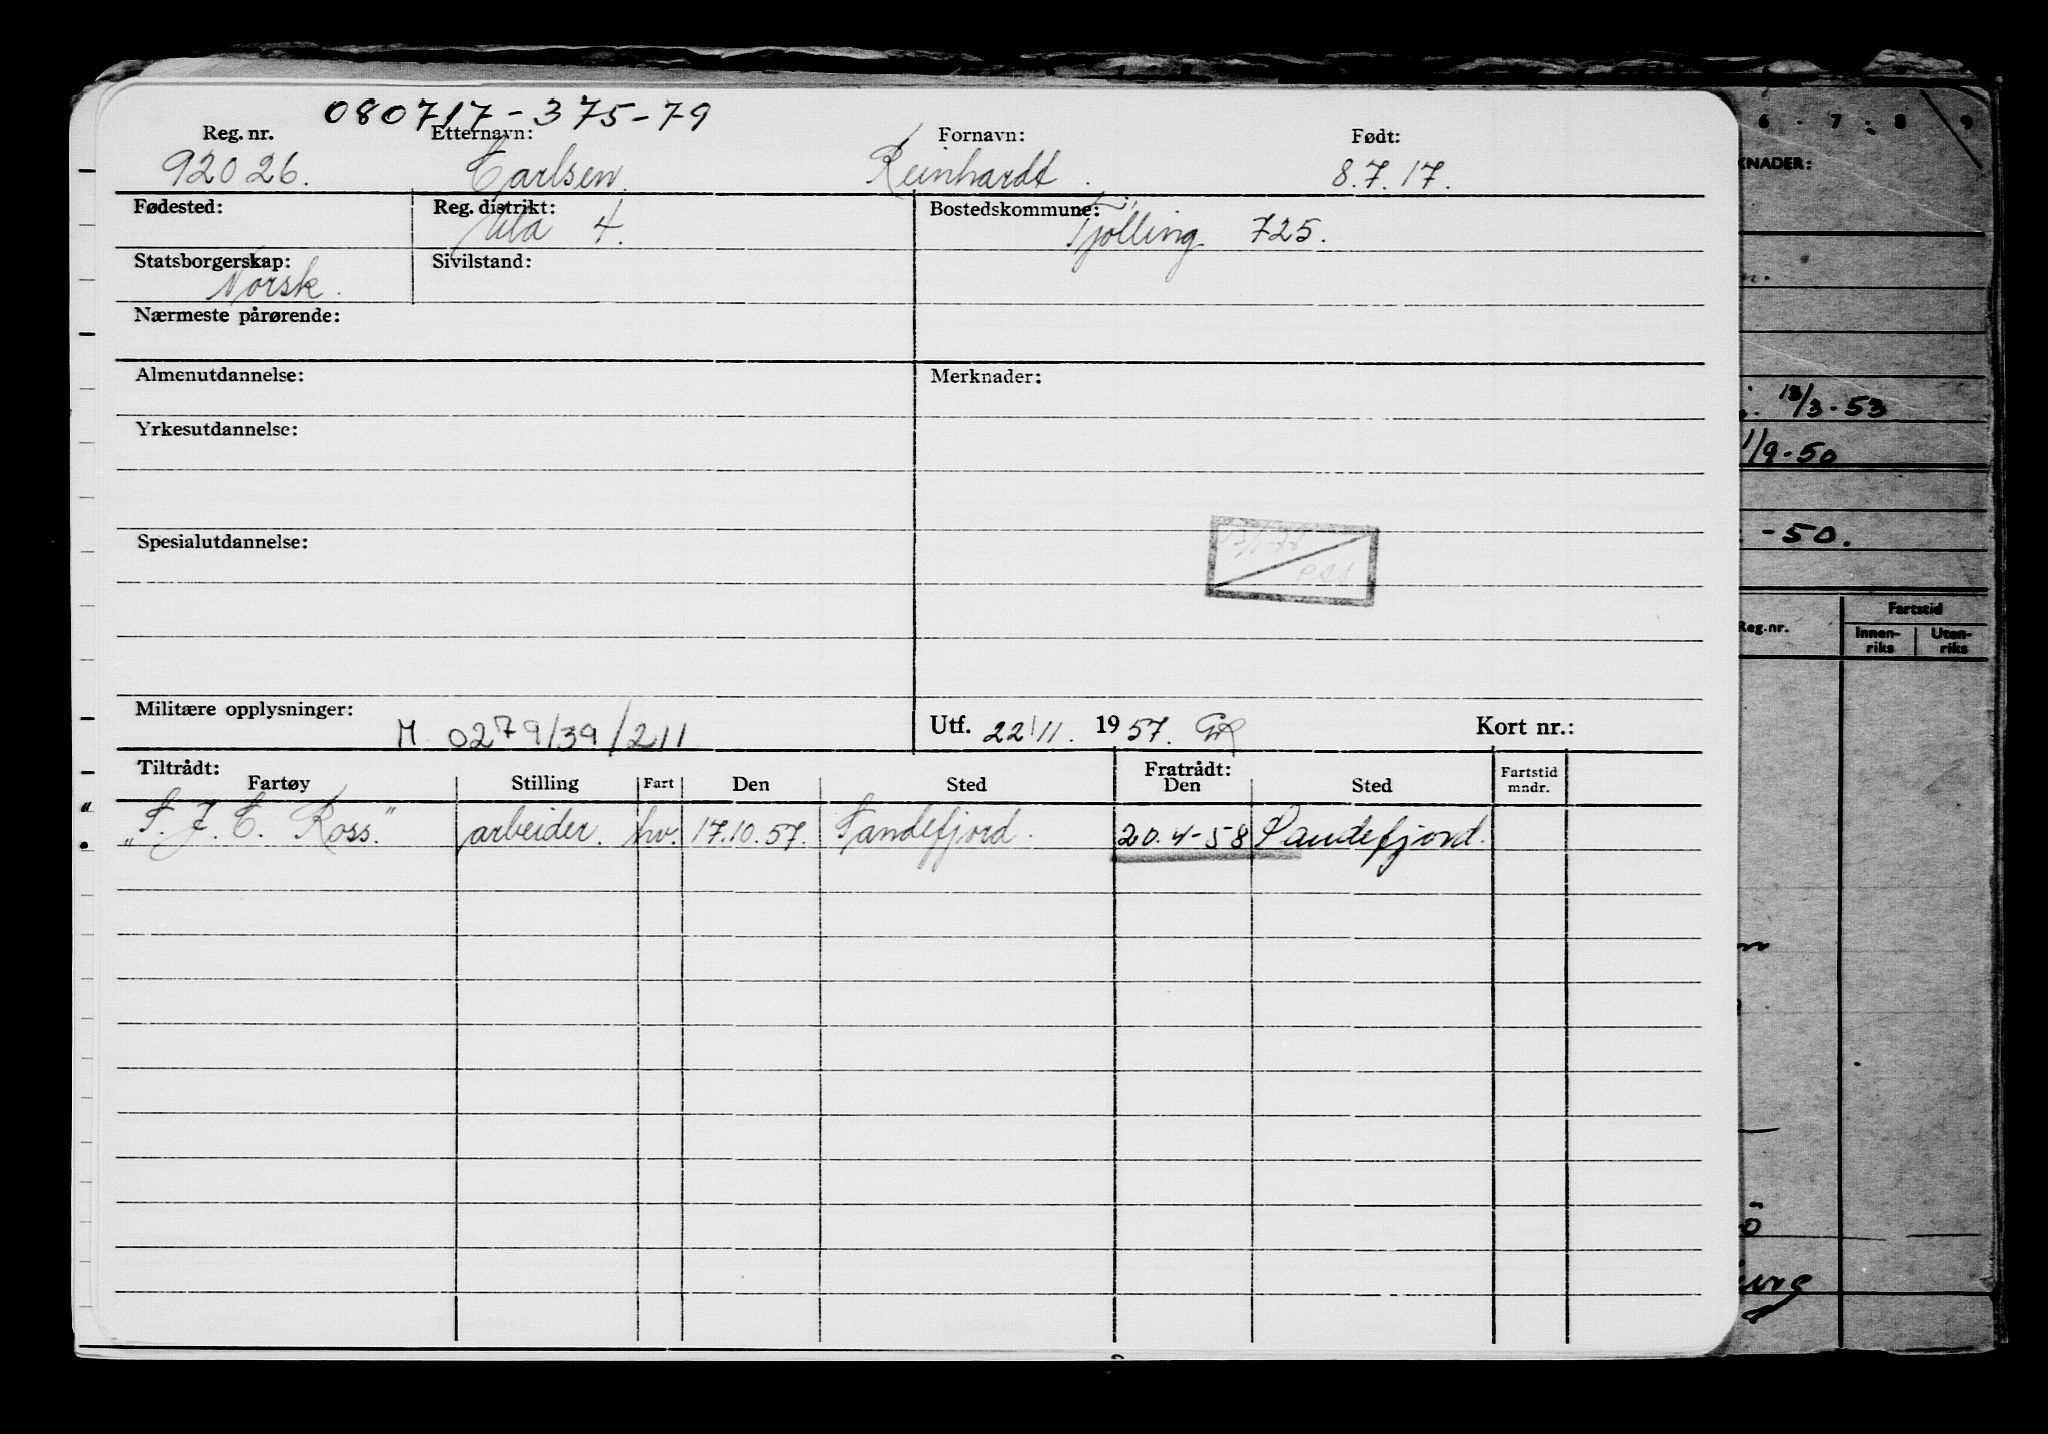 080717-375-79
Reg. nr. Etternavn: Fornavn: Født:
92026. Carlsen. Reinhardt. 8.7.17.
Fødested: Reg. distrikt: Bostedskommune:
Ula 4. Tjølling 725.
Statsborgerskap: Sivilstand:
Norsk.
Nærmeste pårørende:
Almenutdannelse: Merknader:
Yrkesutdannelse:
Spesialutdannelse:
Militære opplysninger: M 0279/39/211 Utf. 22/11. 1957. Kort nr.:
Tiltrådt: Fratrådt:
Fartøy Stilling Fart Den Sted Den Sted Fartstid mndr.
"S. J. C. Ross." arbeider. hv. 17.10.57. Sandefjord. 20.4-58 Sandefjord.
6 . 7 . 8 9
KNADER:
13/3-53
1/9-50
-50.
Reg.nr. Fartstid
Innen-riks Uten-riks